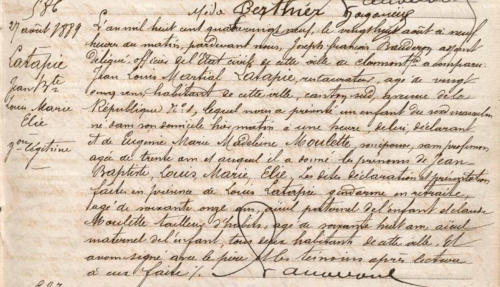 Berthier
27 août 1889
Latapie
Jean Bte
Louis Marie
Elie
gon légitime
L'an mil huit cent quatre vingt neuf, le vingt huit août à neuf
heures du matin, pardevant nous, Joseph francis adjoint
délégué, officier de l'Etat civil de cette ville de clermont a comparu
Jean Louis Martial Latapie, restaurateur, âgé de vingt
cinq ans, habitant de cette ville, canton sud, avenue de la
République lequel nous a présenté un enfant du sexe masculin
né en son domicile hier matin à une heure, de lui déclarant
et de Eugénie Marie Madeleine Moulette, son épouse, sans profession,
agée de trente ans et auquel il a donné les prénoms de Jean
Baptiste, Louis, Marie, Elie, Les dites déclaration et présentation
faites en présence de Louis Latapie gendarme en retraite,
âgé de soixante onze ans, aïeul paternel de l'enfant et claude
Moulette tailleur d'habits, agé de soixante huit ans aïeul
maternel de l'enfant, tous deux habitants de cette ville, Et
avons signé avec le père et les témoins après lecture
à eux faite /.